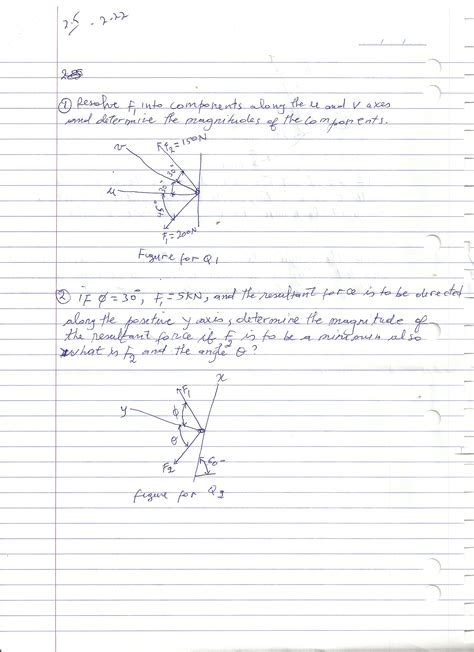 2.5 - 2.22
① Resolve F₁ into components along the u and v axes
and determine the magnitudes of the components.
v
F₂=150N
30°
u
45°
F₁=200N
Figure for Q1
② IF φ=30°, F₁=5KN, and the resultant force is to be directed
along the positive y axis, determine the magnitude of
the resultant force if F₂ is to be a minimum also
what is F₂ and the angle θ?
x
F₁
y
φ
θ
F₂
60
figure for Q